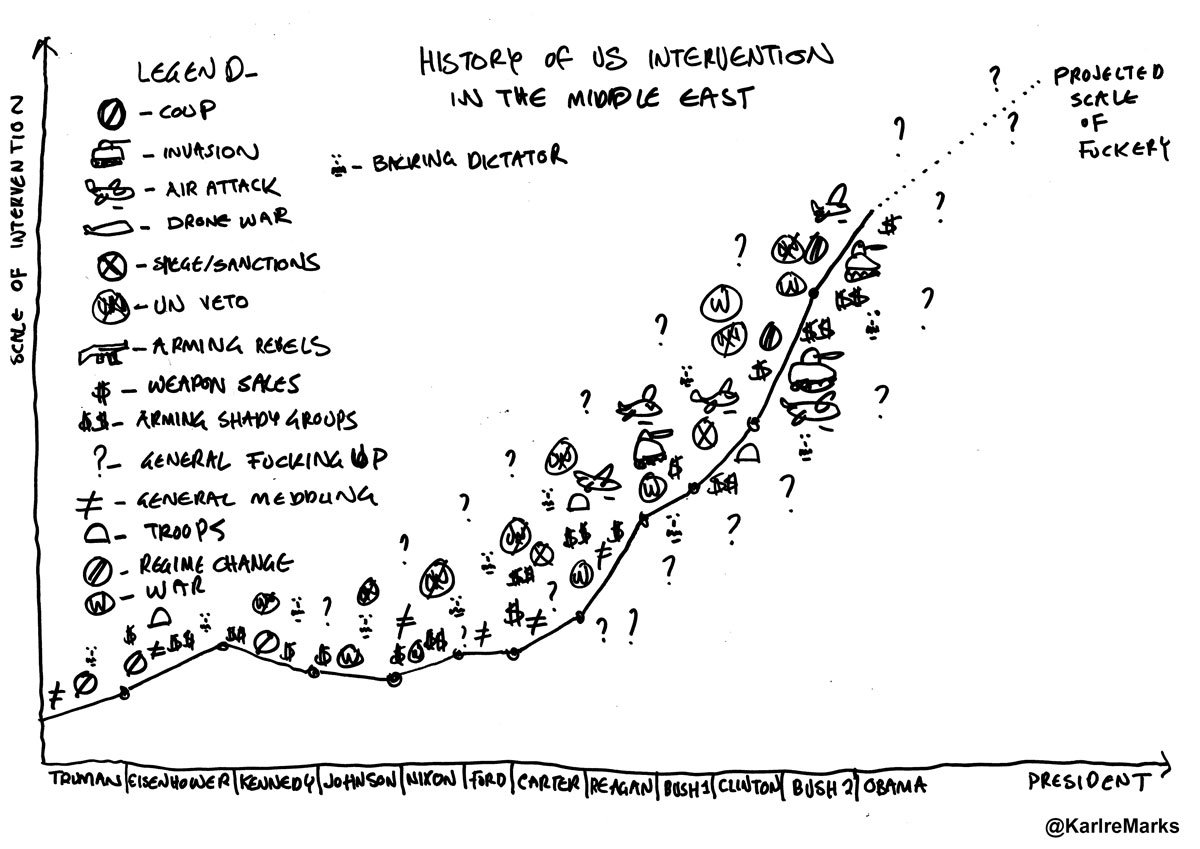 HISTORY OF US INTERVENTION
IN THE MIDDLE EAST
SCALE OF INTERVENTION
LEGEND-
- COUP
- INVASION
- AIR ATTACK
- DRONE WAR
- SIEGE/SANCTIONS
- UN VETO
- ARMING REBELS
$ - WEAPON SALES
$$ - ARMING SHADY GROUPS
? - GENERAL FUCKING UP
≠ - GENERAL MEDDLING
- TROOPS
- REGIME CHANGE
W - WAR
- BACKING DICTATOR
PROJECTED
SCALE
OF
FUCKERY
TRUMAN EISENHOWER KENNEDY JOHNSON NIXON FORD CARTER REAGAN BUSH1 CLINTON BUSH 2 OBAMA
PRESIDENT
@KarlreMarks